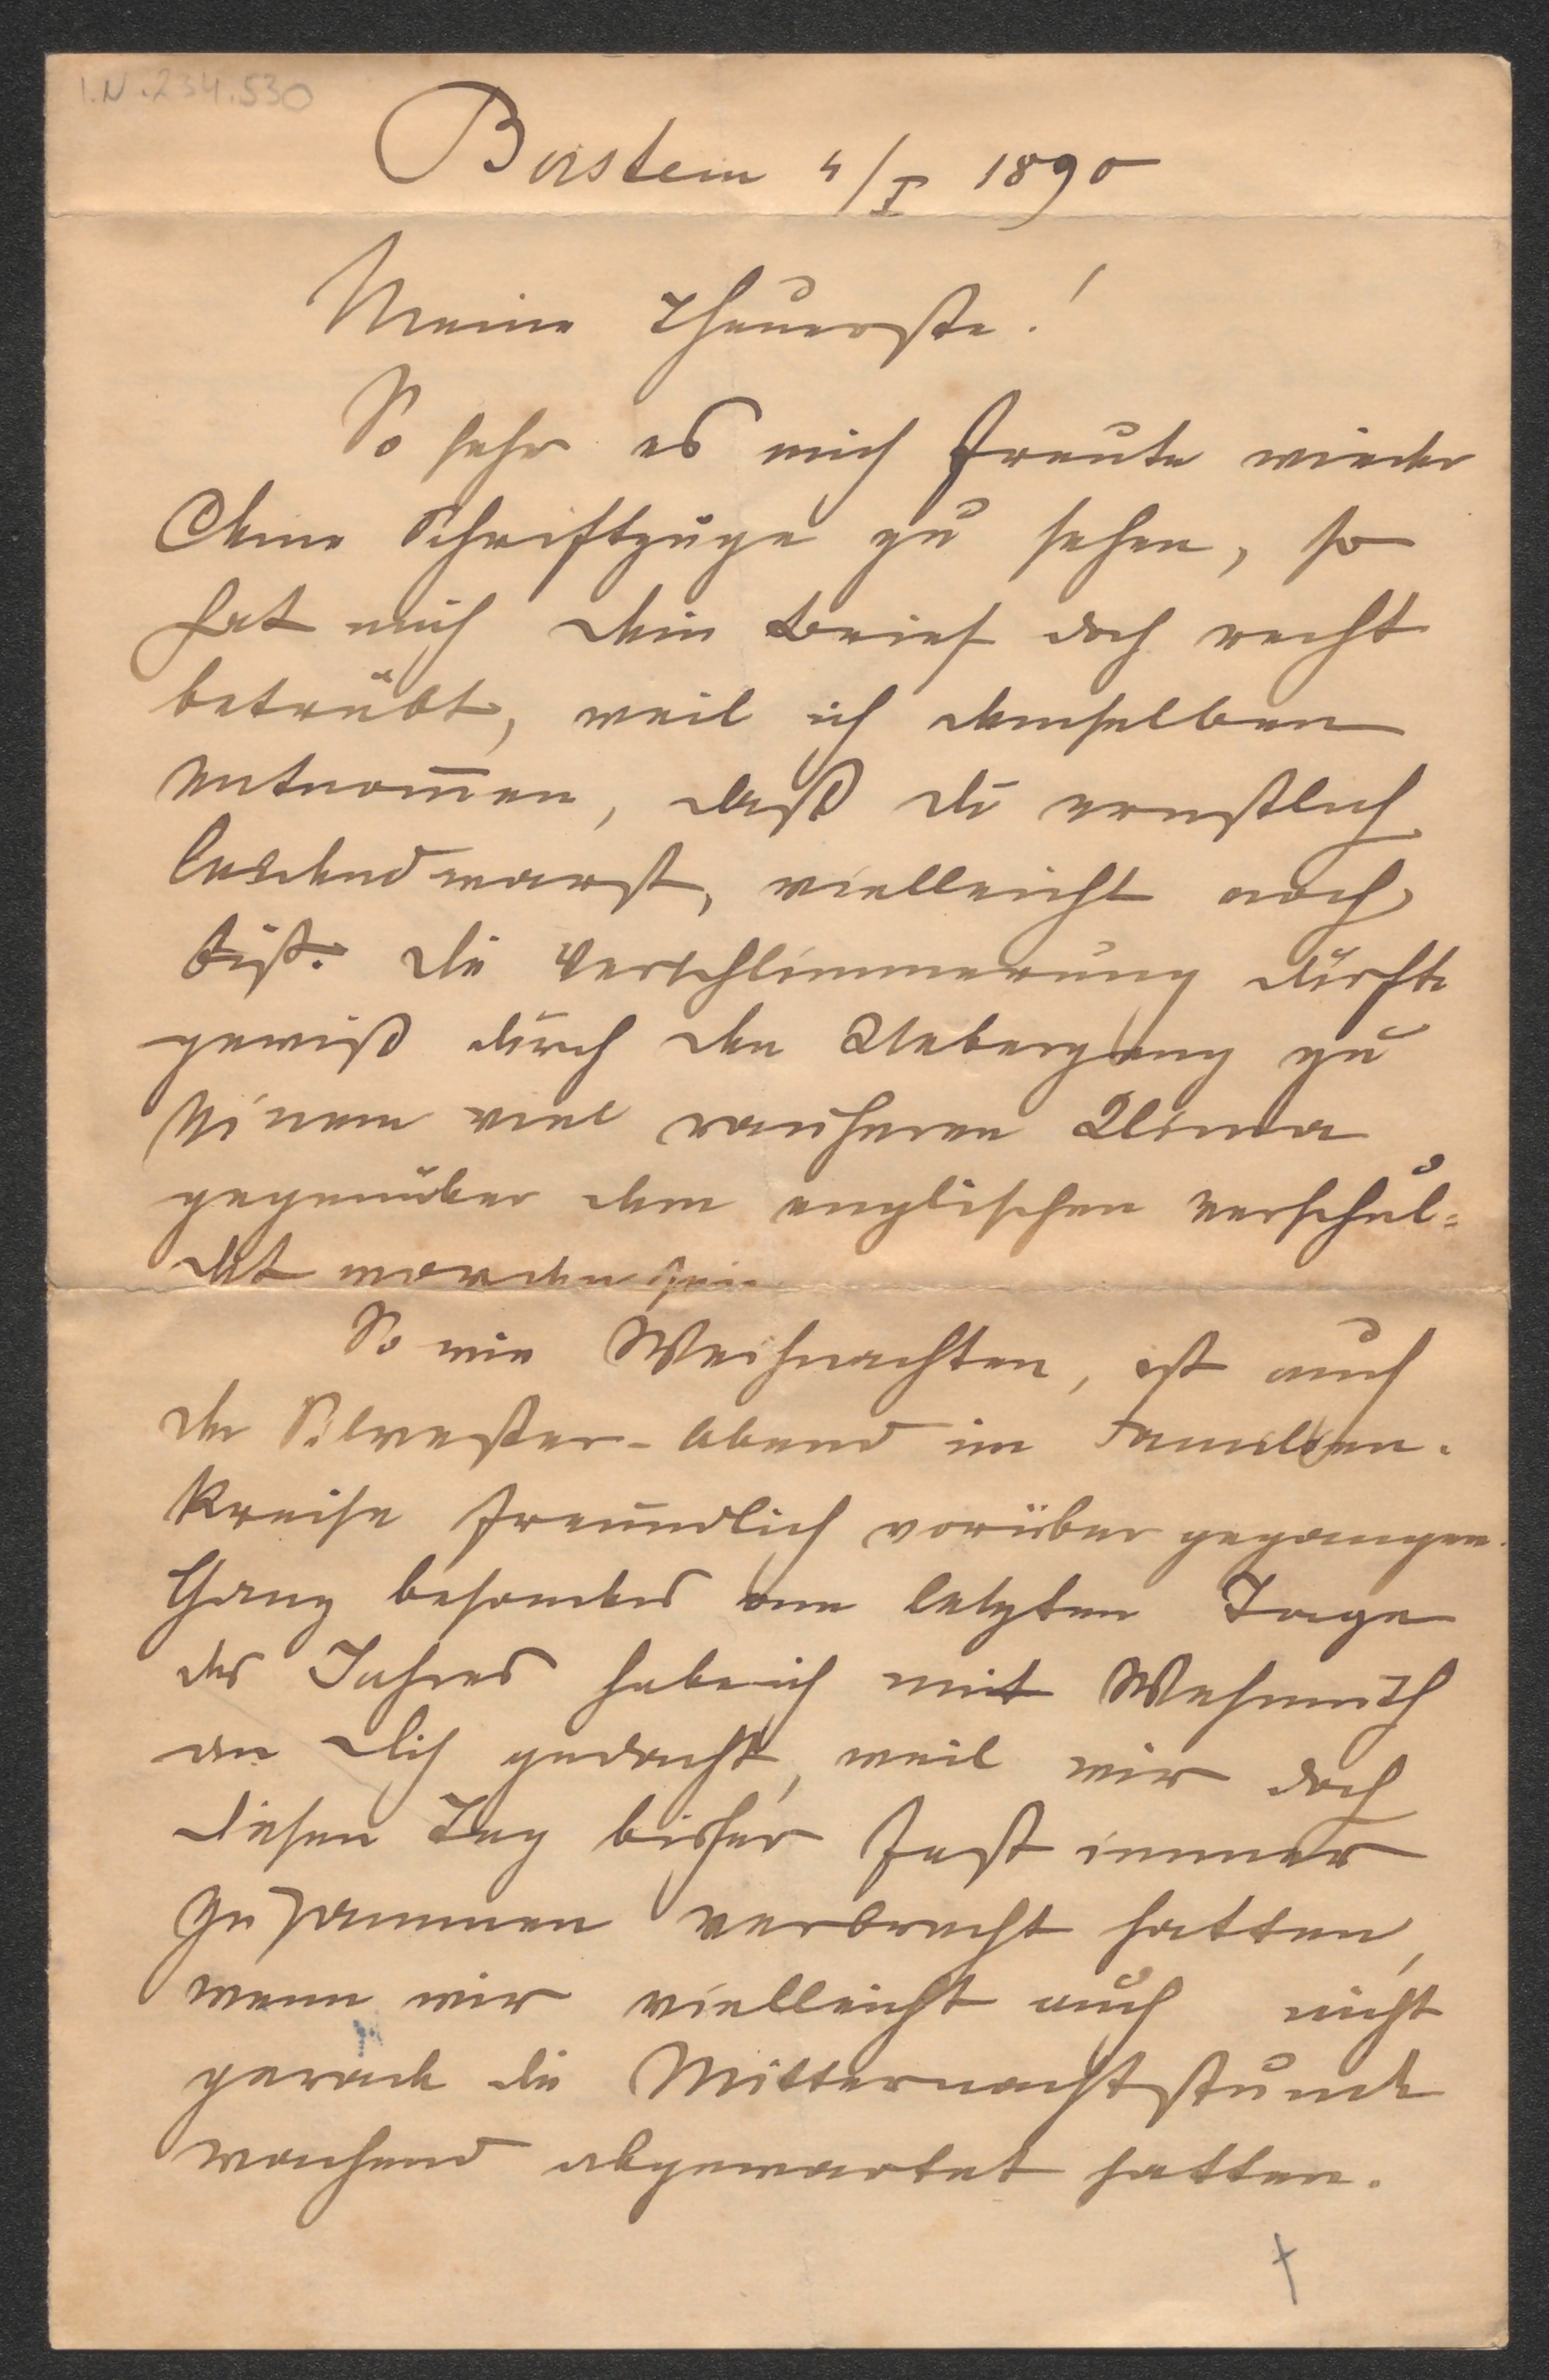 I.N. 234.530
4/I 1890
Meine Theuerste!
So sehr es mich freute wieder
Deine Schriftzüge zu sehen, so
hat mich dein Brief doch recht
betrübt, weil ich demselben
entnom̅en, daß du ernstlich
leidend warst, vielleicht noch
bist. Die Verschlimmerung dürfte
gewiß durch den Uebergang zu
einem viel rauheren Klima
gegenüber dem englischen verschul=
det worden sein
So wie Weihnachten, ist auch
der Silvester-Abend im Familien-
kreise freundlich vorüber gegangen.
Ganz besonders am letzten Tage
des Jahres habe ich mit Wehmuth
an dich gedacht, weil wir doch
diesen Tag bisher fast immer
zusammen verbracht hatten,
wenn wir vielleicht auch nicht
gerade die Mitternachtstunde
wachend abgewartet hatten.